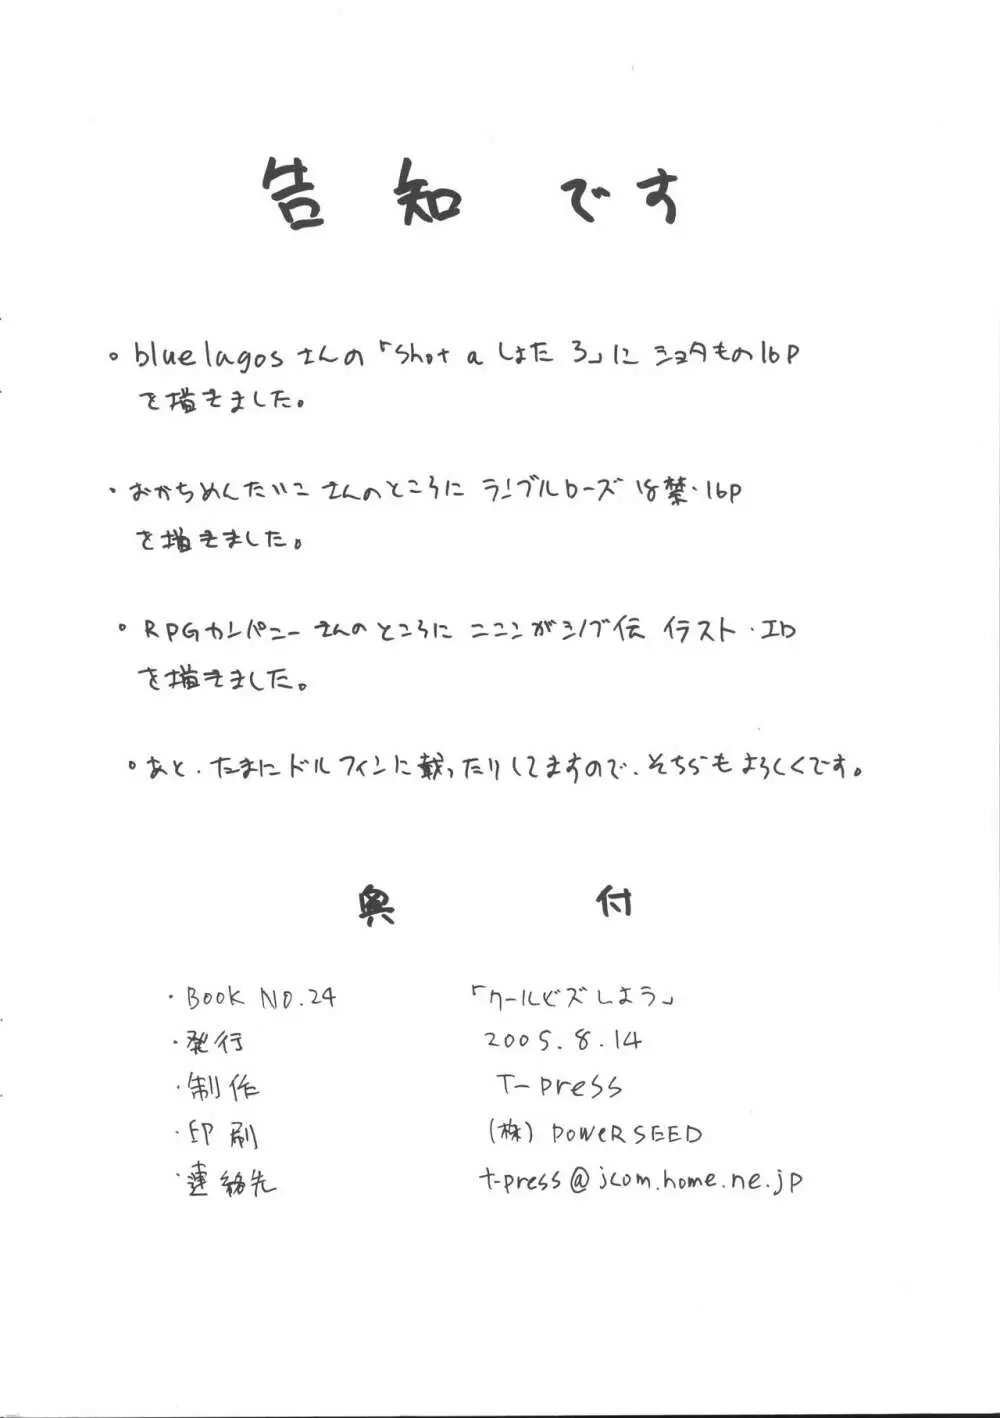 告知です
。bluelagosさんの「Shot a しょたろ」にショタもの16P
を描きました。
・おかちめんたいこさんのところにランブルローズ18禁・16P
を描きました。
。RPGカンパニーさんのところにニニンがシノブ伝イラスト・1P
を描きました。
。あと、たまにドルフィンに載ったりしてますので、そちらもよろしくです。
奥付
・BOOK NO.24 「クールビズしよう」
・発行 2005.8.14
・制作 T-press
・印刷 (株)POWERSEED
・連絡先 t-press@jcom.home.ne.jp